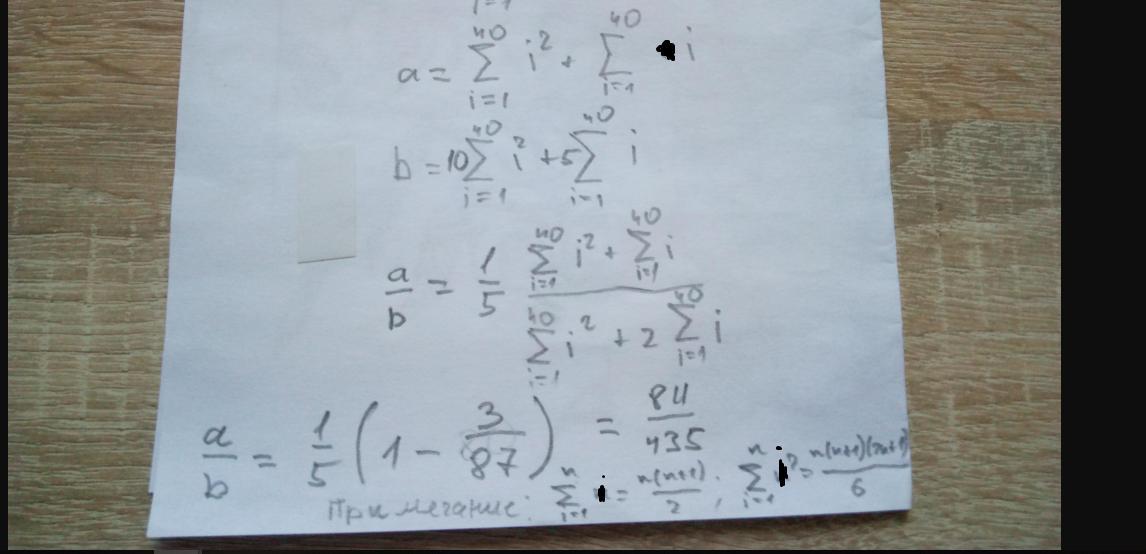 i=1
a = \sum_{i=1}^{40} i^2 + \sum_{i=1}^{40} i
b = 10 \sum_{i=1}^{40} i^2 + 5 \sum_{i=1}^{40} i
\frac{a}{b} = \frac{1}{5} \frac{\sum_{i=1}^{40} i^2 + \sum_{i=1}^{40} i}{\sum_{i=1}^{40} i^2 + 2 \sum_{i=1}^{40} i}
\frac{a}{b} = \frac{1}{5} \left( 1 - \frac{3}{87} \right) = \frac{84}{435}
Примечание: \sum_{i=1}^{n} i = \frac{n(n+1)}{2}; \sum_{i=1}^{n} i^2 = \frac{n(n+1)(2n+1)}{6}